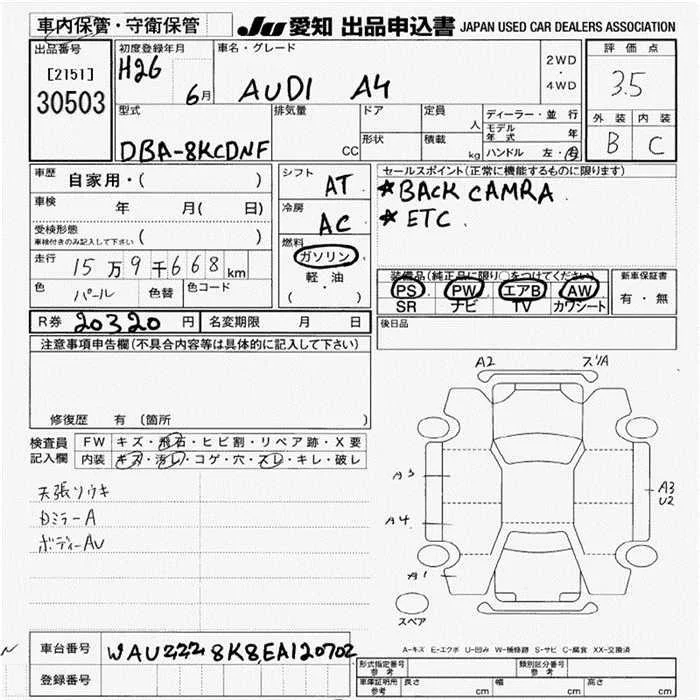 車内保管・守衛保管
JU 愛知 出品申込書 JAPAN USED CAR DEALERS ASSOCIATION
出品番号
[2151]
30503
初度登録年月
H26 6月
車名・グレード
AUDI A4
2WD
・
4WD
評価点
3.5
外装 内装
B C
型式
DBA-8KCDNF
排気量
CC
ドア
形状
定員
人
積載
kg
ディーラー・並行
モデル年式 年
ハンドル 左・右
車歴 自家用・( )
車検 年 月( 日)
受検形態
車検付きのみ記入して下さい ( )
走行 15万9千668km
色 パール 色替 色コード
シフト
AT
冷房
AC
燃料
ガソリン
・
軽・油
( ・ )
セールスポイント(正常に機能するものに限ります)
★BACK CAMRA
★ETC
装備品(純正品に限り○をつけてください)
PS PW エアB AW
SR ナビ TV カワシート
新車保証書
有・無
後日品
R券 20320円 名変期限 月 日
注意事項申告欄(不具合内容等は具体的に記入して下さい)
修復歴 有 (箇所
検査員記入欄
FW キズ・飛石・ヒビ割・リペア跡・X要
内装 キズ・汚レ・コゲ・穴・スレ・キレ・破レ
天張ソウキ
ミラーA
ボディーAU
A2
A3
A4
A1
A3
U2
スペア
A-キズ E-エクボ U-凹み W-補修跡 S-サビ C-腐食 XX-交換済
車台番号 WAUZZZ8K8EA120702
登録番号
形式指定番号
参考
類別区分番号
参考
車庫証明用
参考
長さ cm 幅 cm 高さ cm